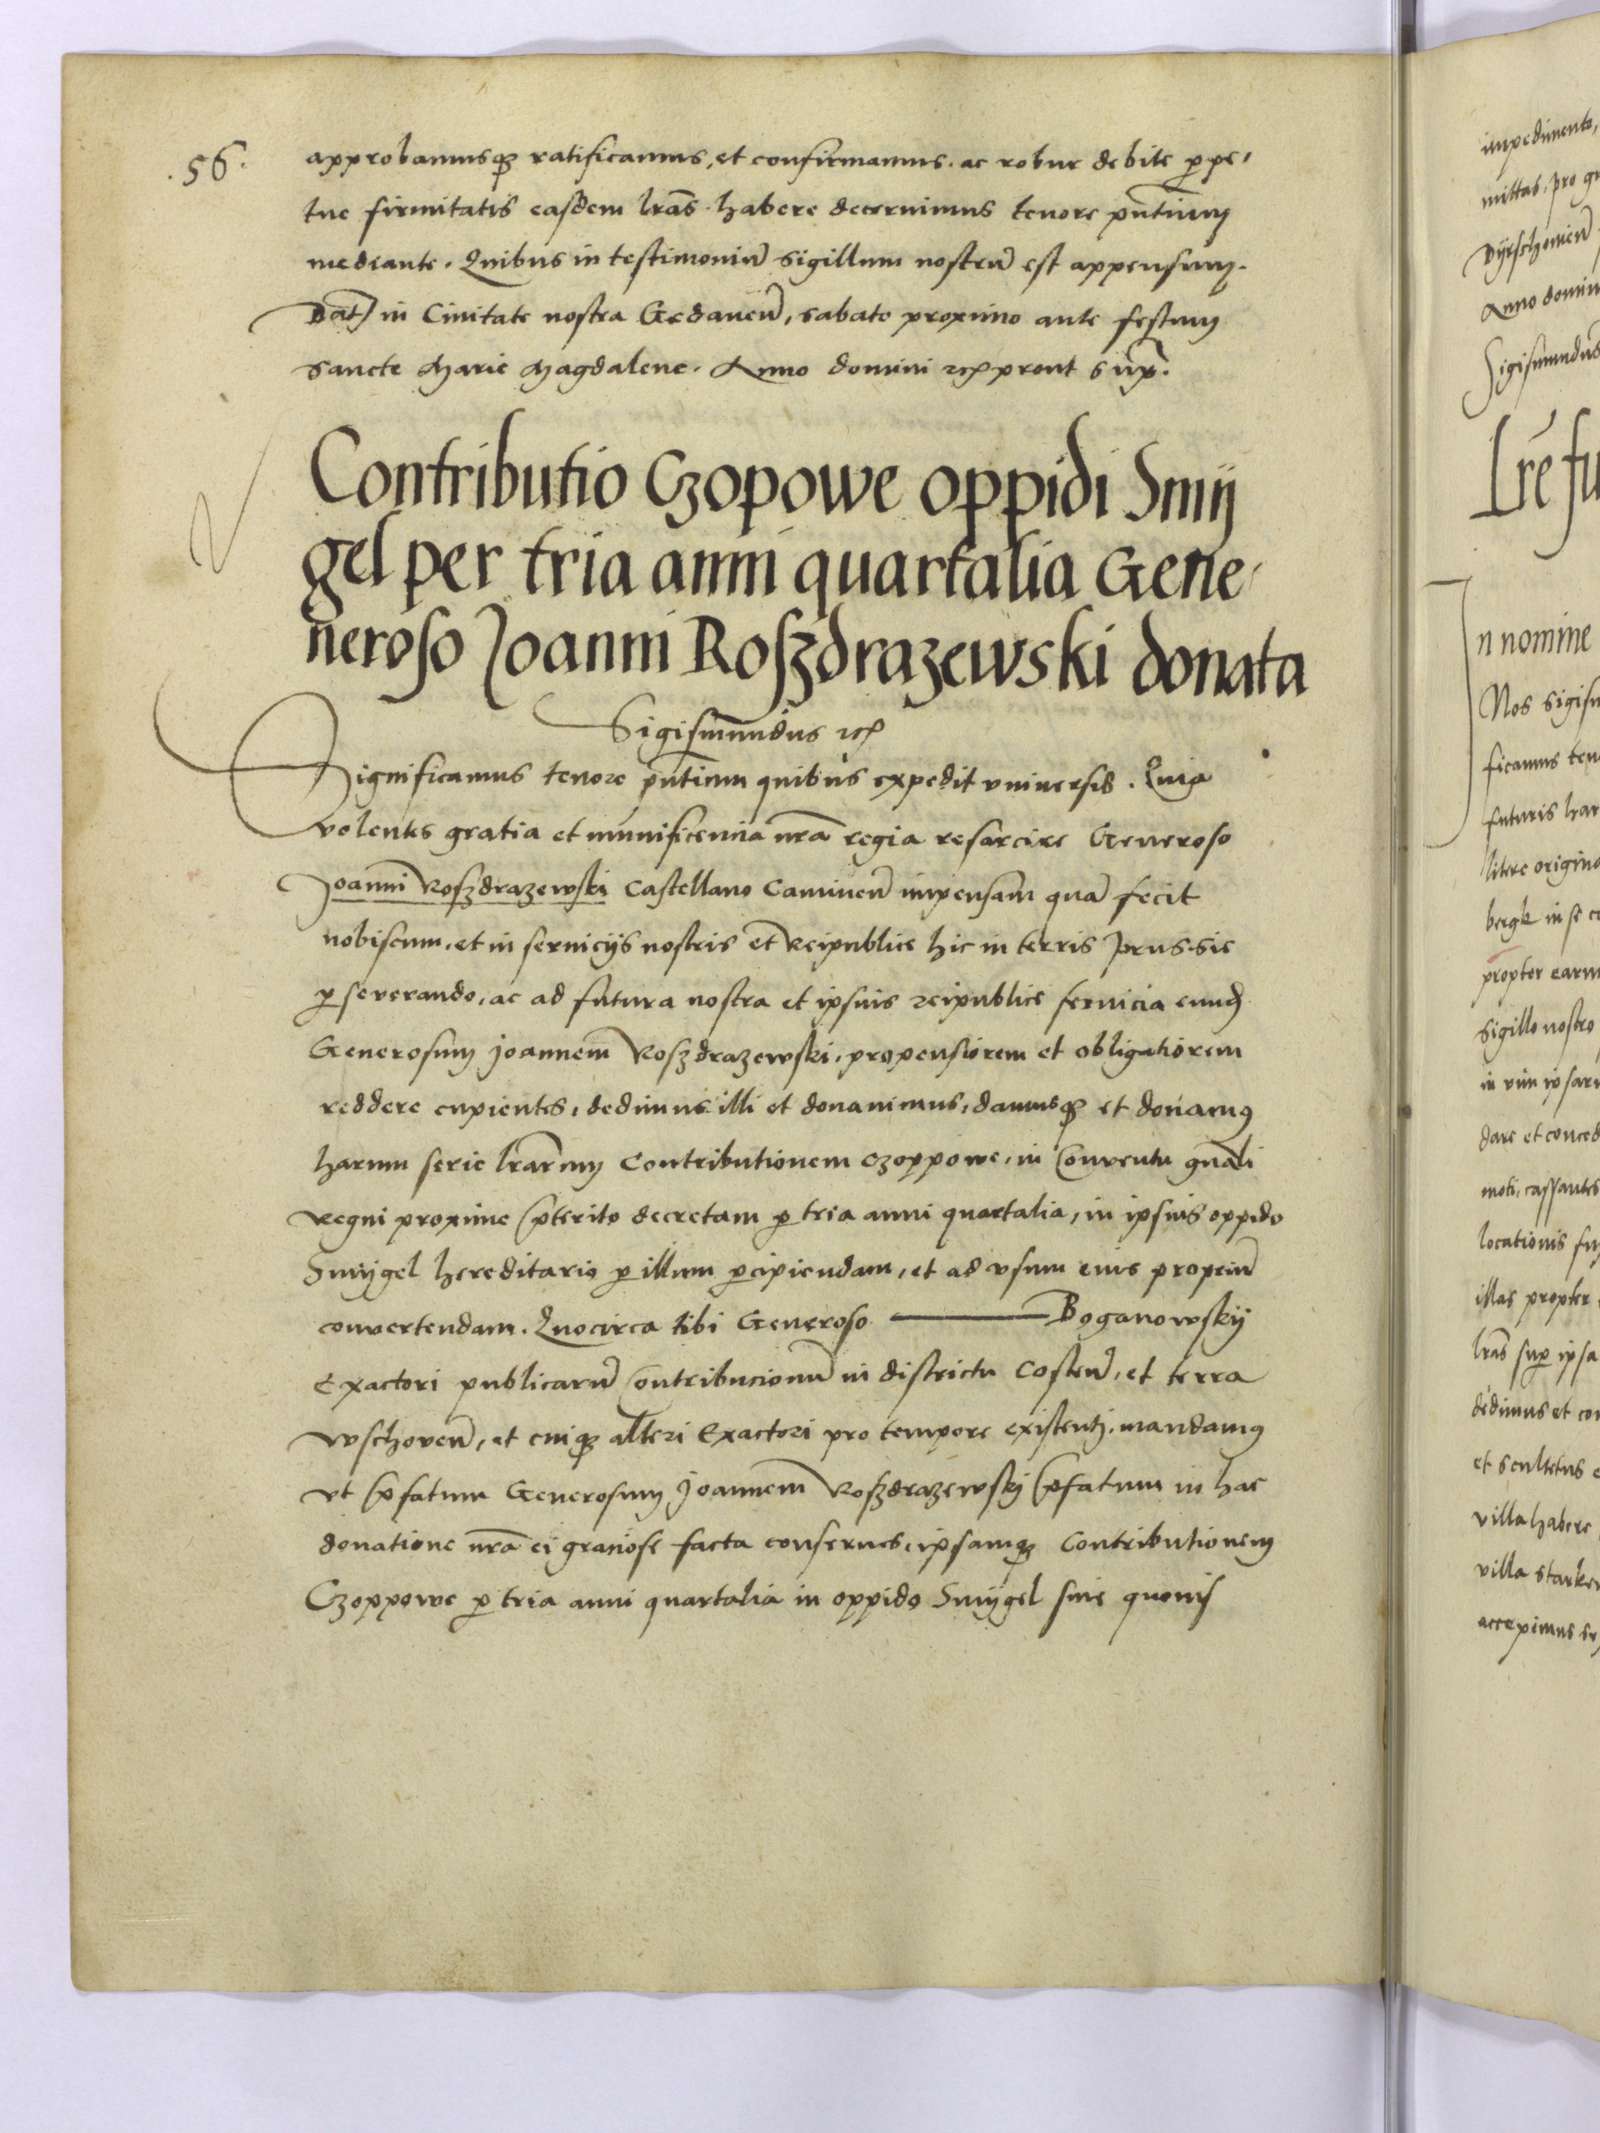 .56.
approbamusq(ue) ratificamus, et confirmamus. ac robur debite p(er)pe,
tue firmitatis easdem lras habere decernimus tenore pntium
mediante. Quibus in testimoniu sigillum nostru est appensum.
Dat in Civitate nostra Gedanen, sabato proximo ante festum
sancte Marie Magdalene. Anno domini etc prout sup.
Contributio Czopowe oppidi Smij
gel per tria anni quartalia Gene,
neroso Joanni Roszdrazewski donata
Sigismundus etc
Significamus tenore pntium quibus expedit universis. Quia
volentes gratia et munificentia nra regia resarcire Generoso
Joanni Roszdrazewski Castellano Caminen impensam qua fecit
nobiscum, et in serviciis nostris et Reipublice hic in terris Prussie
p(er)severando, ac ad futura nostra et ipsius reipublice servicia eund
Generosum Joannem Roszdrazewski, propensiorem et obligatiorem
reddere cupientes, dedimus illi et donavimus, damusq(ue) et donamus
harum serie lrarum Contributionem Czoppowe, in Conventu gnali
Regni proxime p(re)terito decretam p(er) tria anni quartalia, in ipsius oppido
Smijgel hereditario p(er) illum p(er)cipiendam, et ad usum eius propriu
convertendam. Quocirca tibi Generoso ——— Boganowskij
Exactori publicaru Contribucionu in districtu Costen, et terra
wschoven, et cuiq(ue) alteri Exactori pro tempore existenti, mandamus
ut p(re)fatum Generosum Joannem Roszdrazewski p(re)fatum in hac
donatione nra ei graciose facta conserves, ipsamq(ue) Contributionem
Czoppowe p(er) tria anni quartalia in oppido Smijgel sine quovis
impedimento,
mittas, pro
Anno domin
Sigismundus
Lre fu
In nomine
Nos Sigism
ficamus ten
futuris har
litere origina
bergk in se
propter earum
sigillo nostro
in vim ipsaru
dare et conced
moti, cassantes
locationis
illas propter
lras sup ipsa
dedimus et con
et scultetus
villa habere
villa starken
accepimus